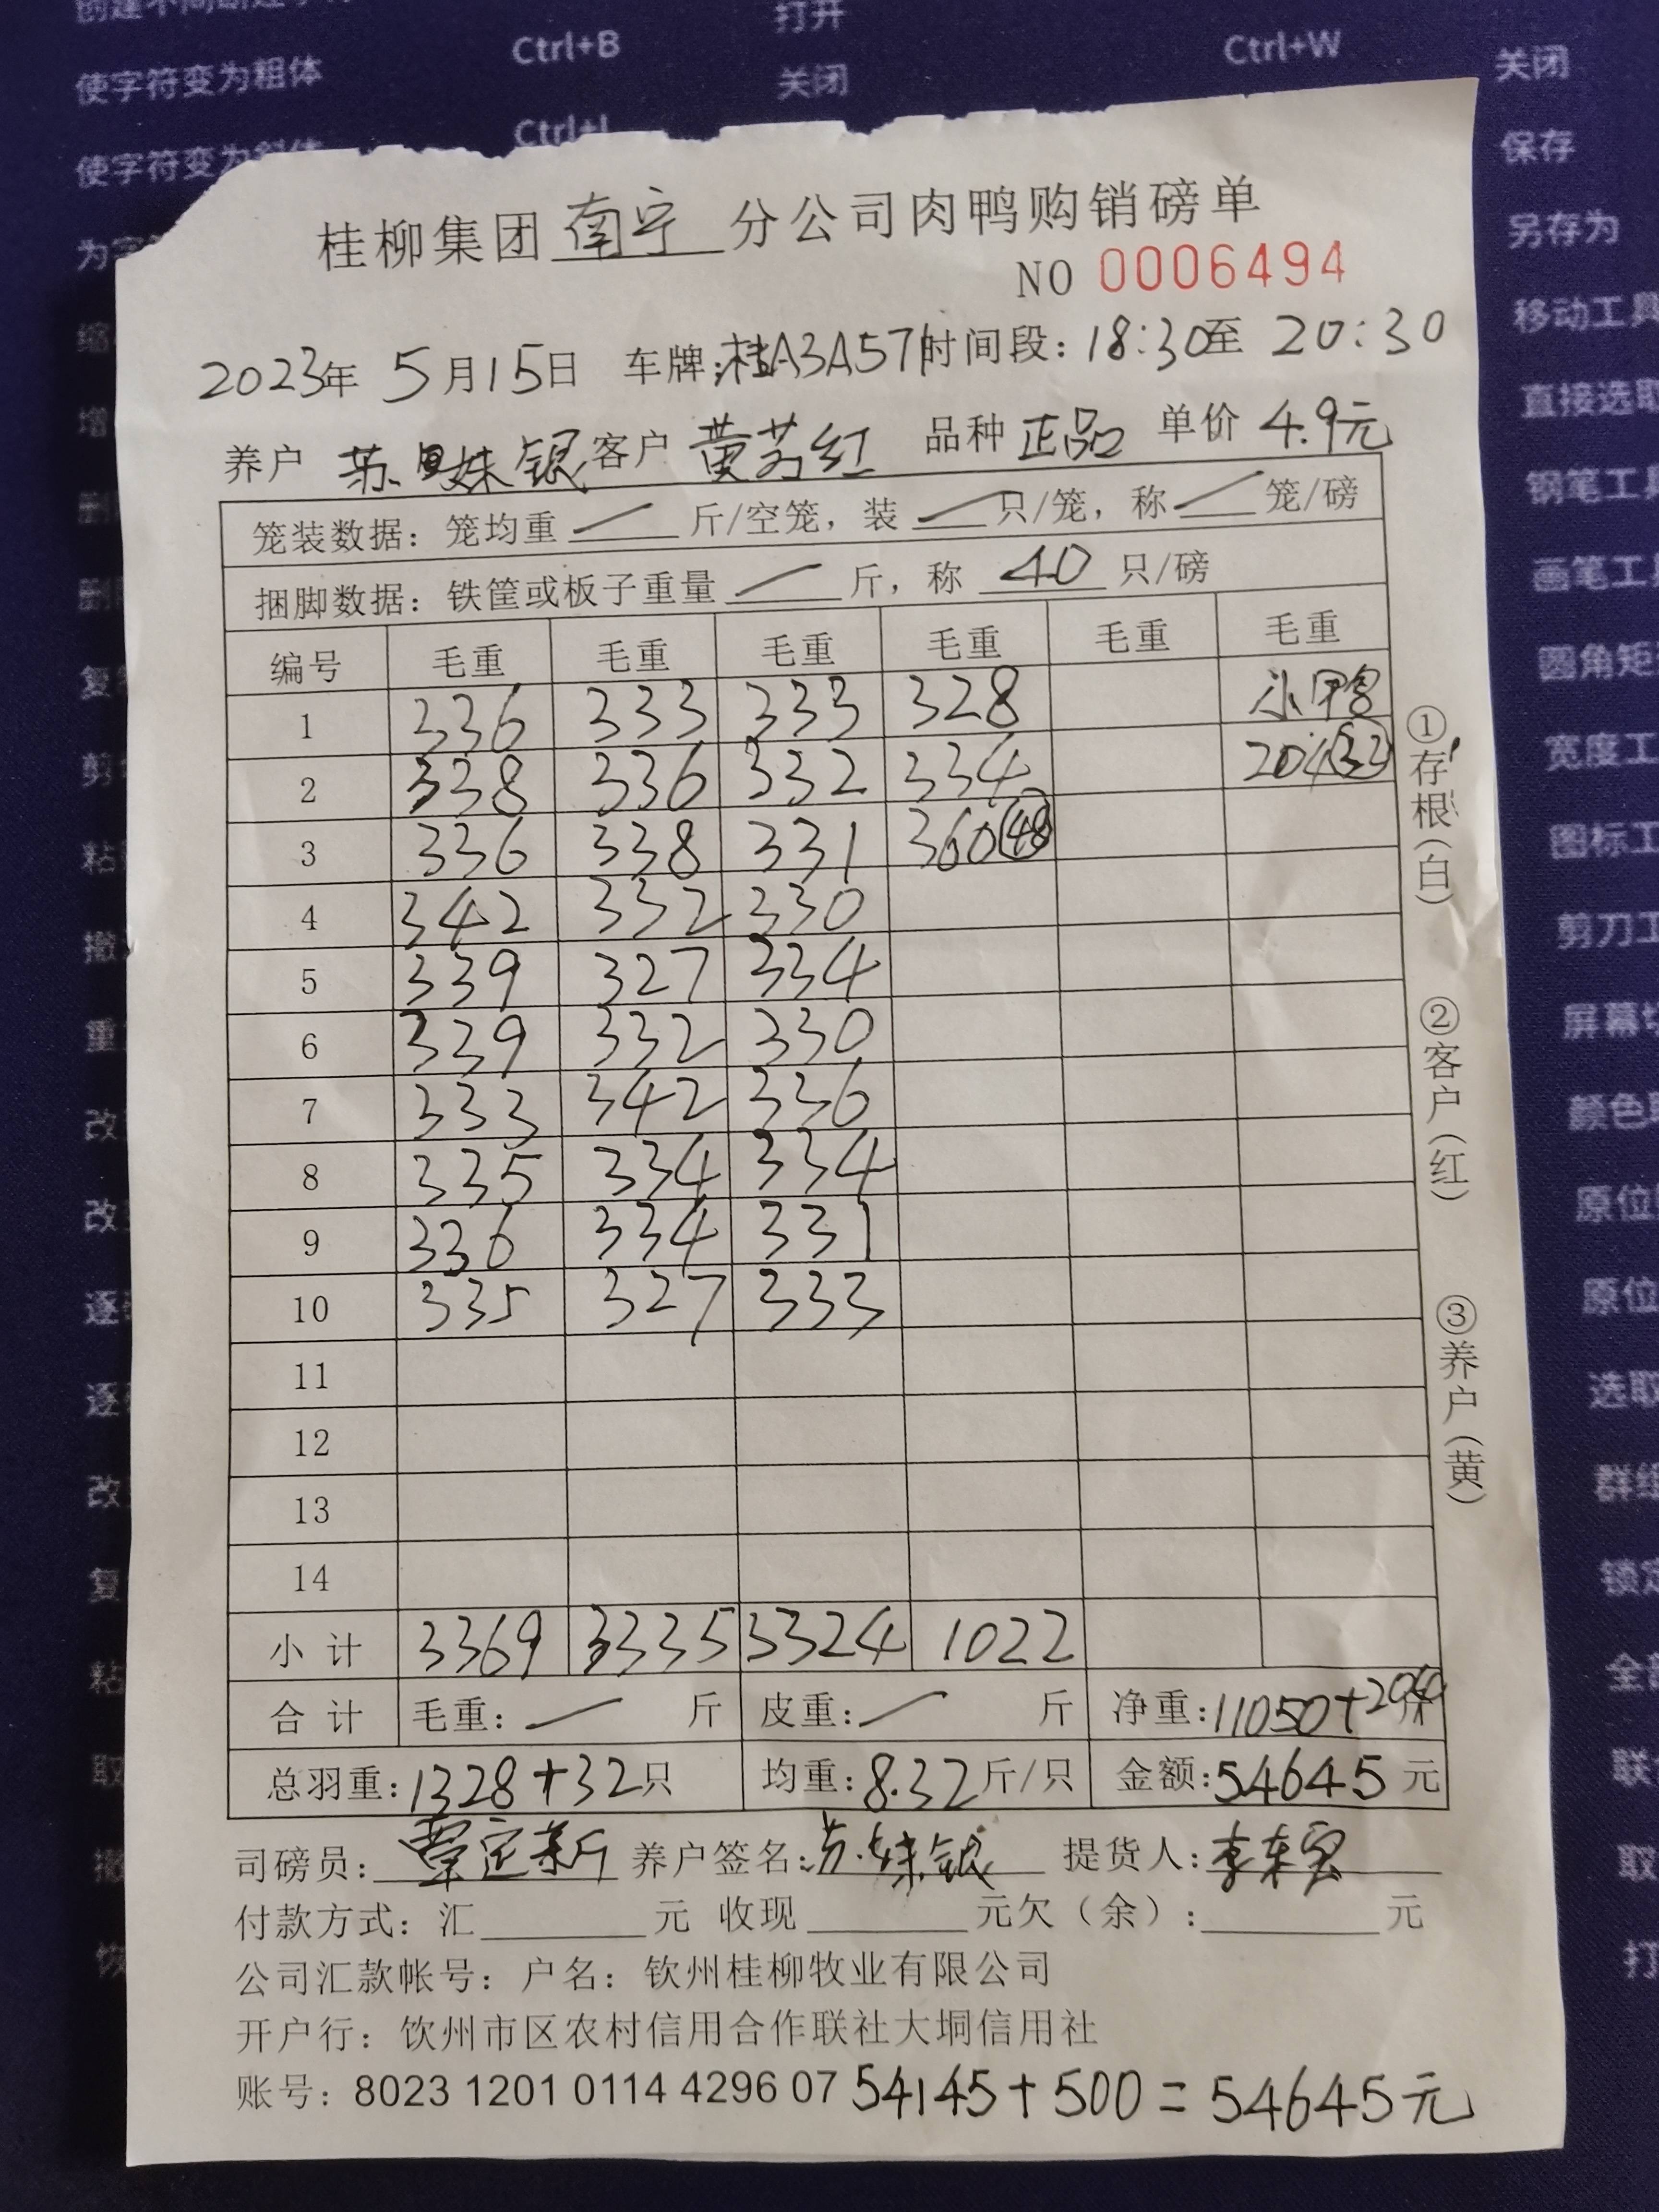 Ctrl+B
打开
Ctrl+W
关闭
使字符变为粗体
关闭
保存
另存为
移动工具
直接选取
桂柳集团 南宁 分公司肉鸭购销磅单
NO 0006494
2023年 5月15日 车牌:桂A3A571 时间段: 18:30至 20:30
养户 苏妹银 客户 黄芳红 品种 正品 单价 4.9元
笼装数据: 笼均重 / 斤/空笼, 装 / 只/笼, 称 / 笼/磅
捆脚数据: 铁筐或板子重量 / 斤, 称 40 只/磅
编号 毛重 毛重 毛重 毛重 毛重 毛重
1 336 333 333 328 小鸭
2 338 336 332 334 204(32)
3 336 338 331 360(48)
4 342 332 330
5 339 327 334
6 339 332 330
7 333 342 336
8 335 334 334
9 336 334 331
10 335 327 333
11
12
13
14
小计 3369 3335 3324 1022
合计 毛重: / 斤 皮重: / 斤 净重: 11050+204斤
总羽重: 1328+32只 均重: 8.32斤/只 金额: 54645元
司磅员: 覃定新 养户签名: 苏妹银 提货人:
付款方式: 汇 元 收现 元欠(余): 元
公司汇款帐号: 户名: 钦州桂柳牧业有限公司
开户行: 钦州市区农村信用合作联社大垌信用社
账号: 8023 1201 0114 4296 07 54145+500=54645元
①存根(白)
②客户(红)
③养户(黄)